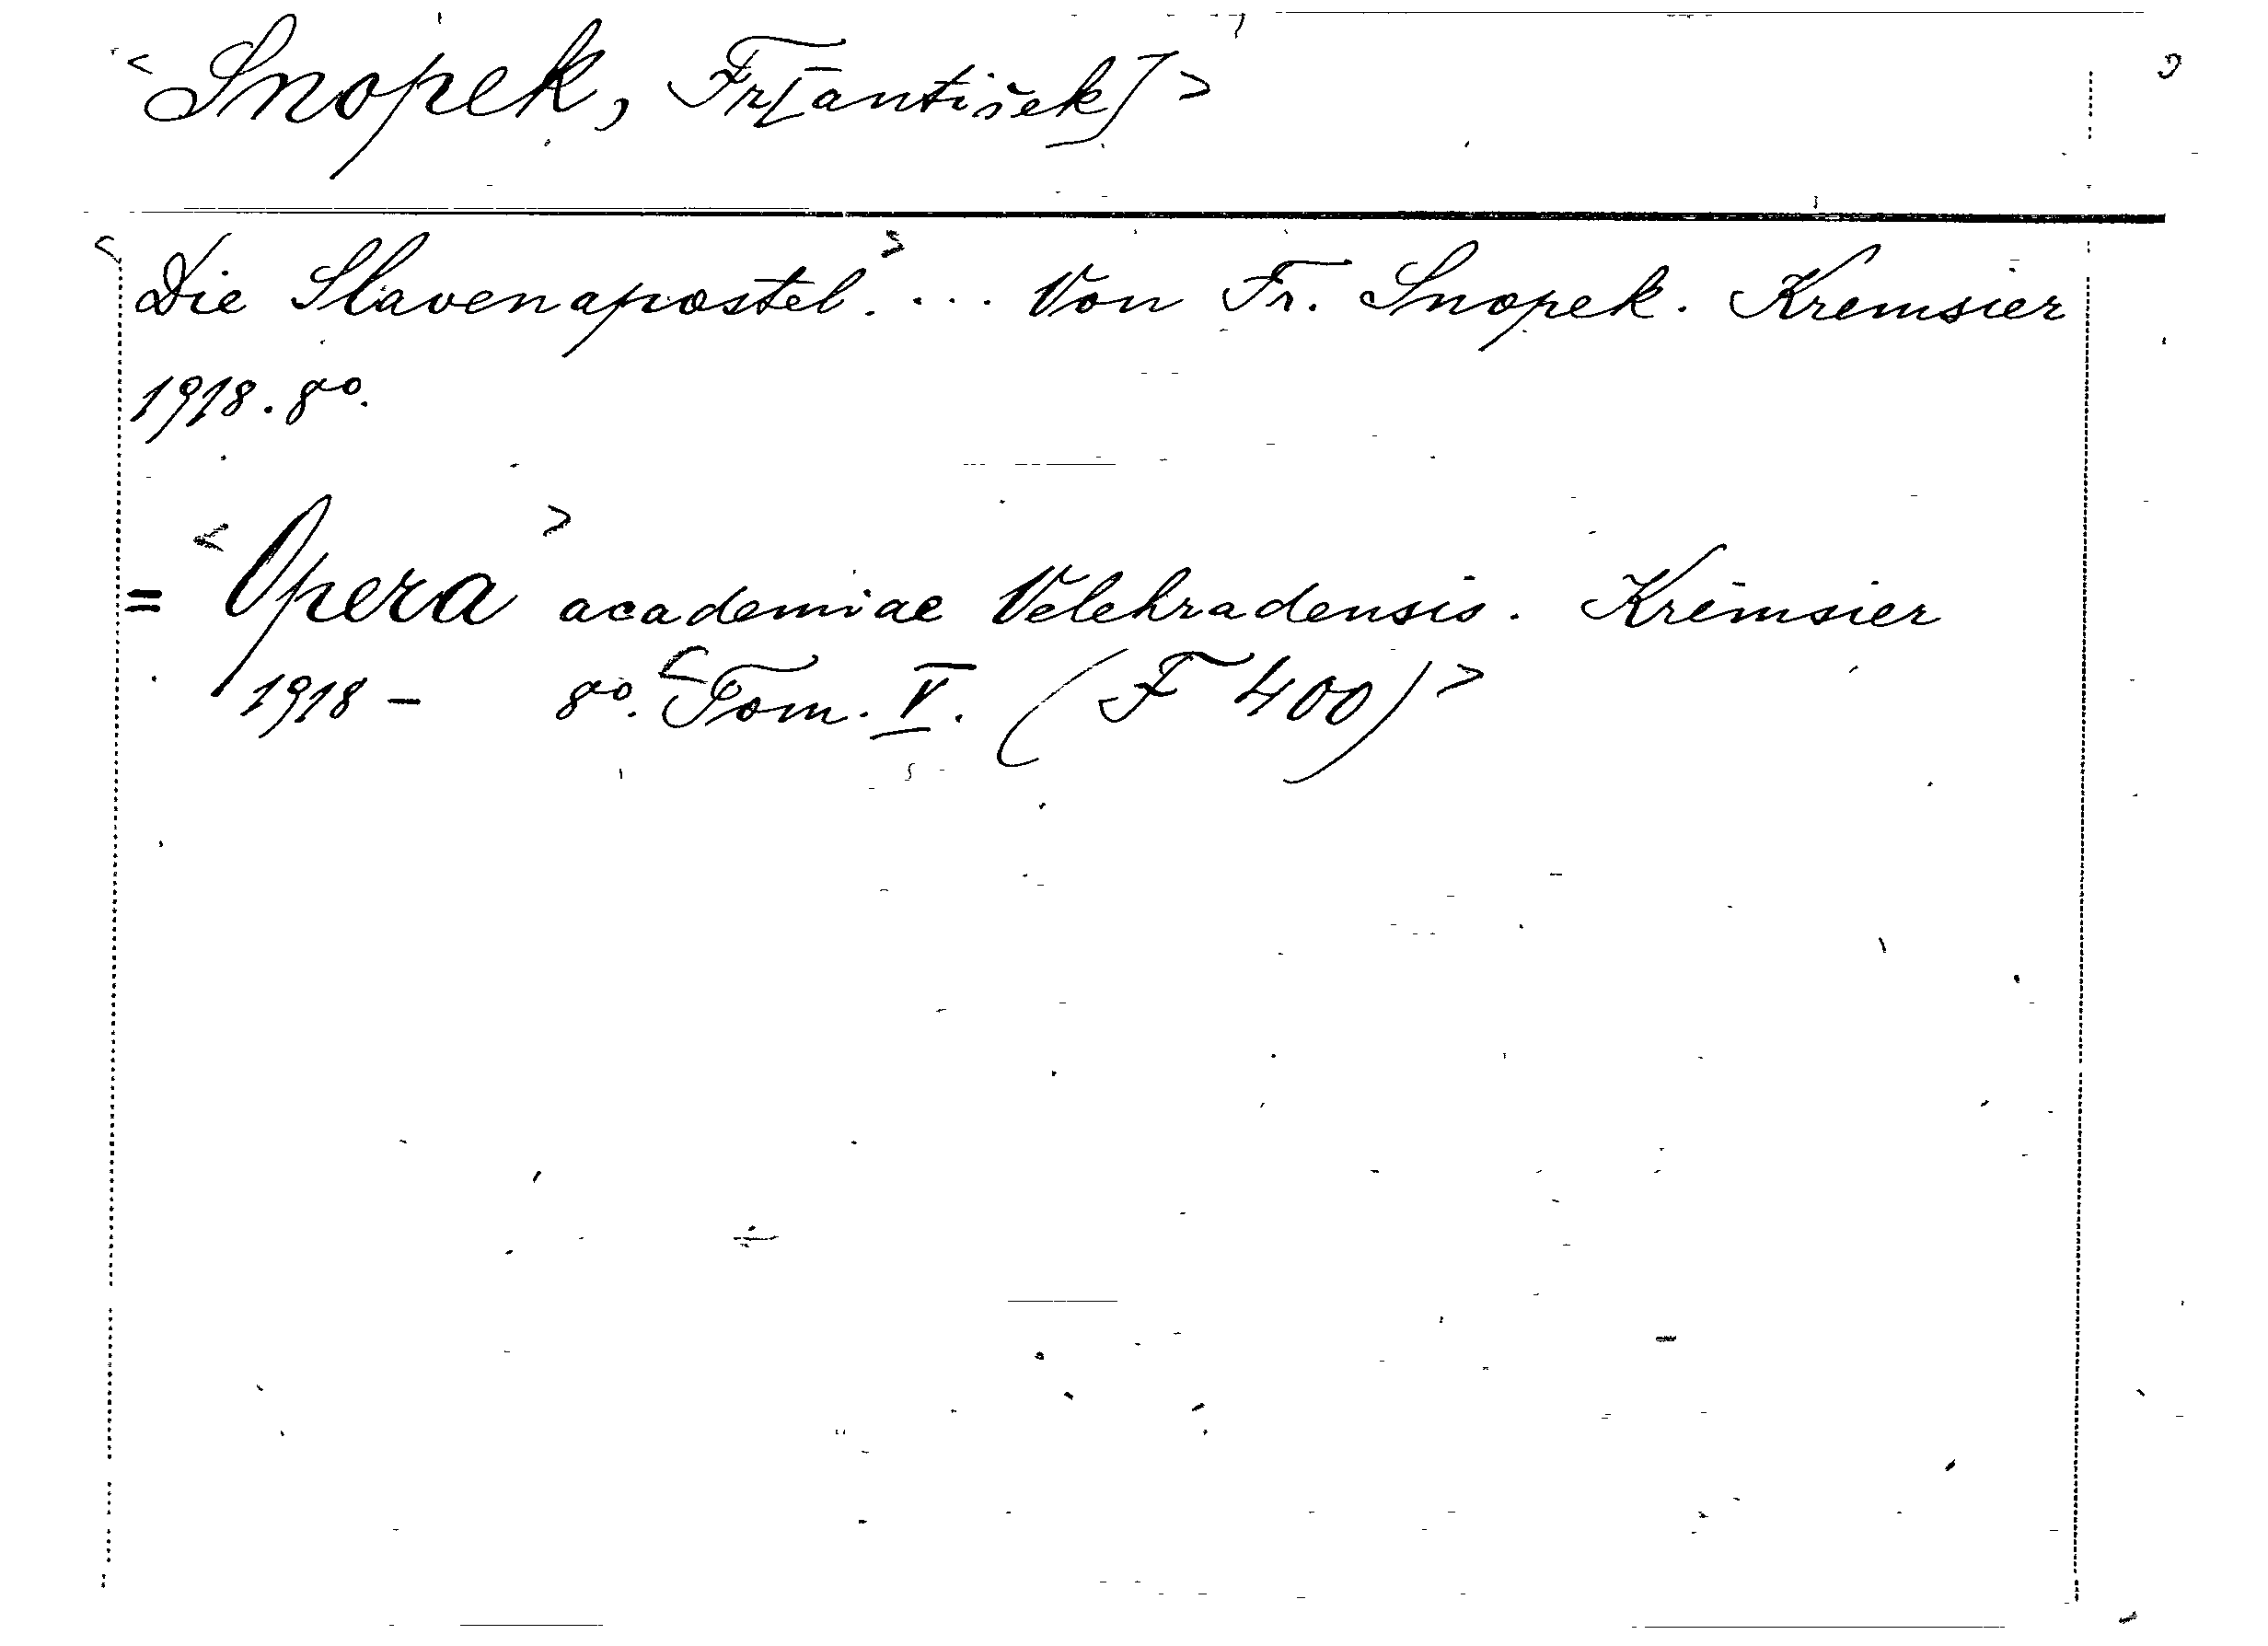 <Snopek, Fr[antišek]>
<Die Slavenapostel.> ... Von Fr. Snopek. Kremsier
1918. 8o.
= <Opera> academiae Velehradensis. Kremsier
1918 - 8o. <Tom. V. (F 400)>